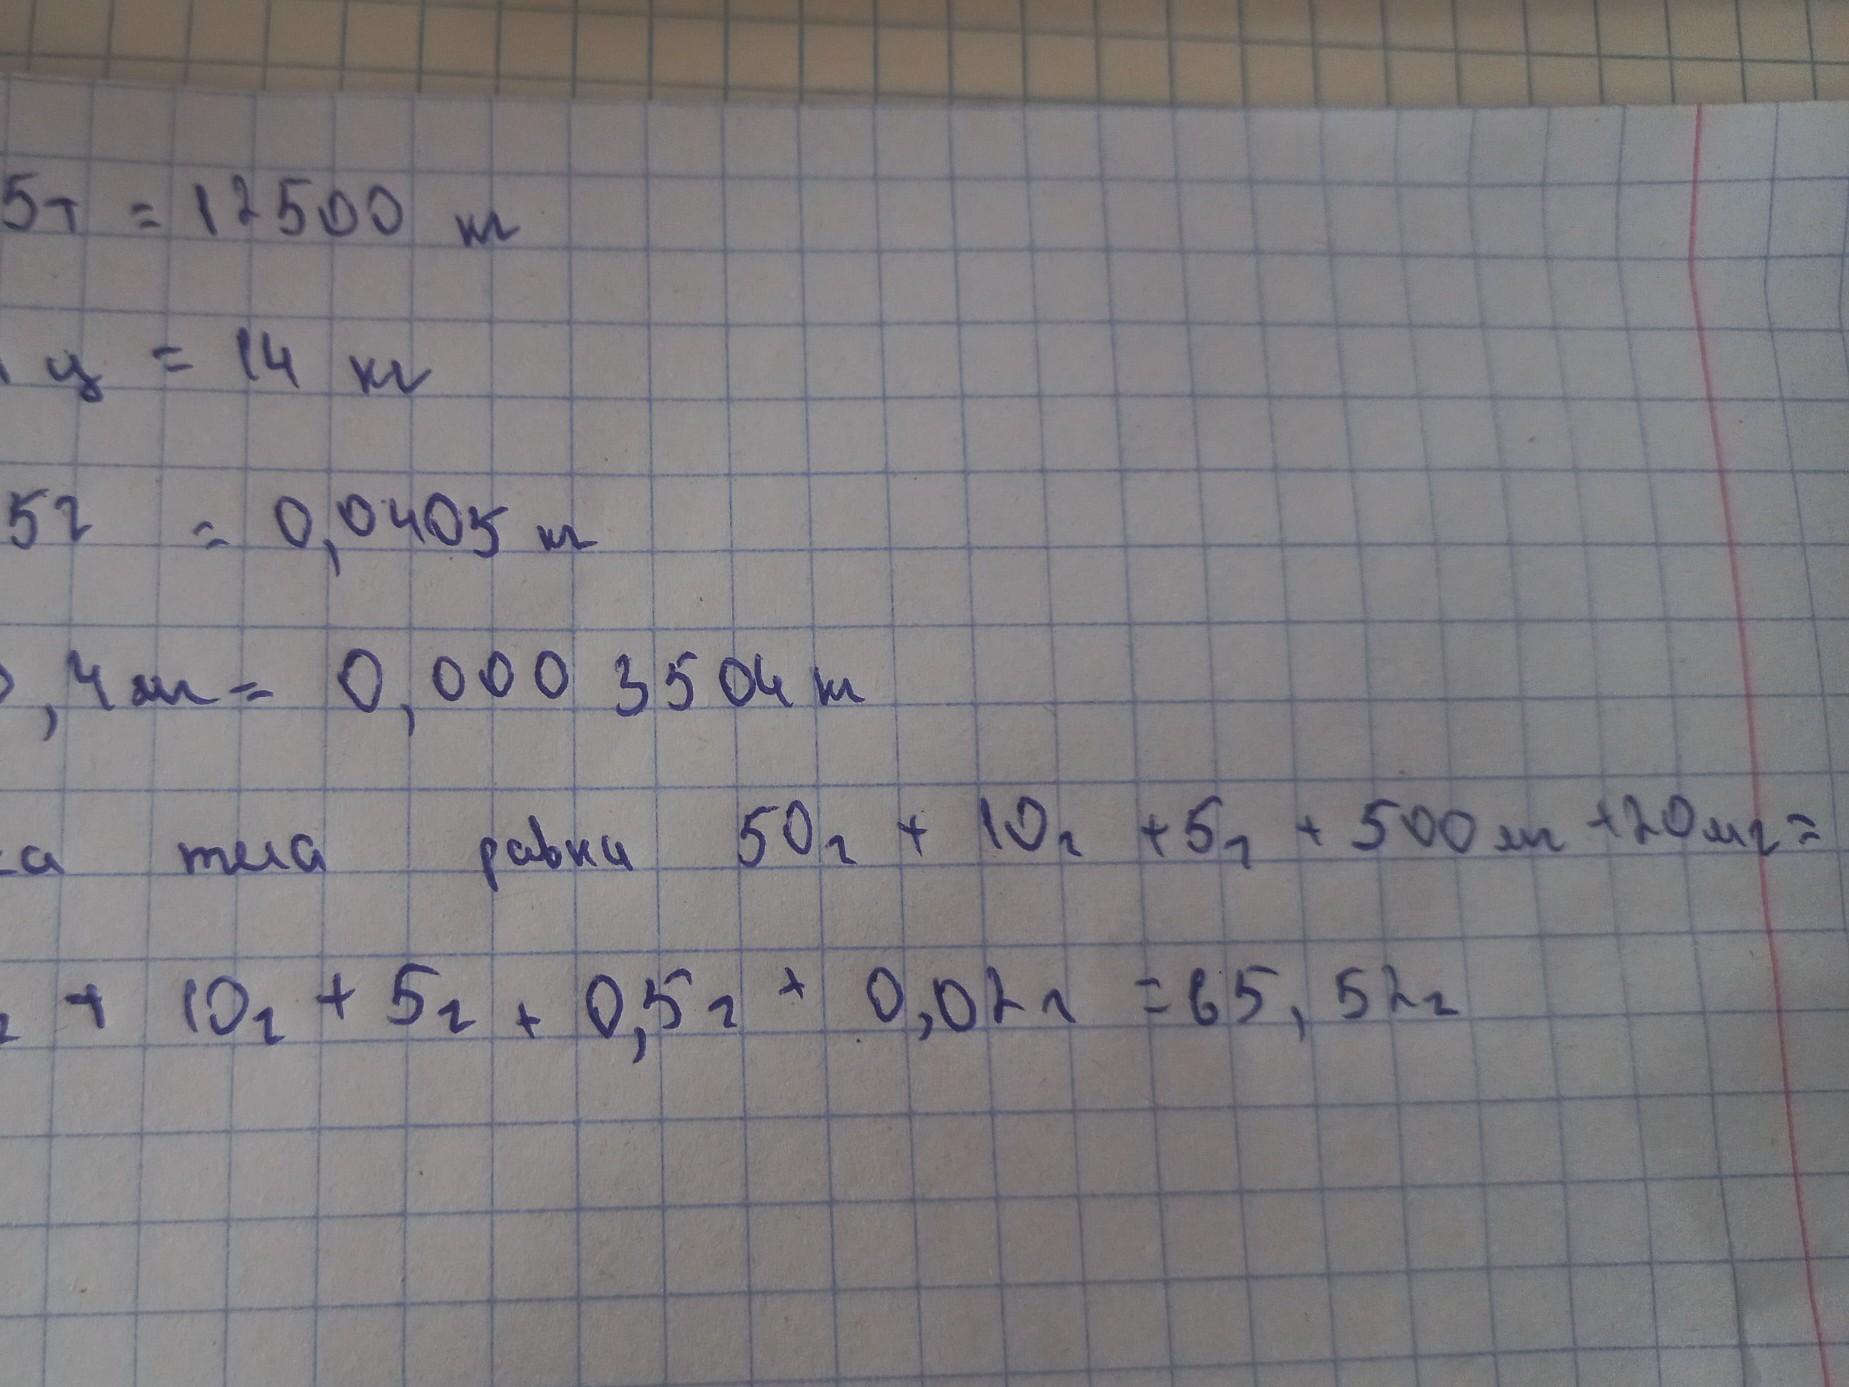 5т = 12500 кг
ц = 14 кг
5г = 0,0405 кг
,4 мг = 0,000 3504 кг
са тела равна 50г + 10г + 5г + 500 мг + 20 мг =
г + 10г + 5г + 0,5г + 0,02г = 65,52г